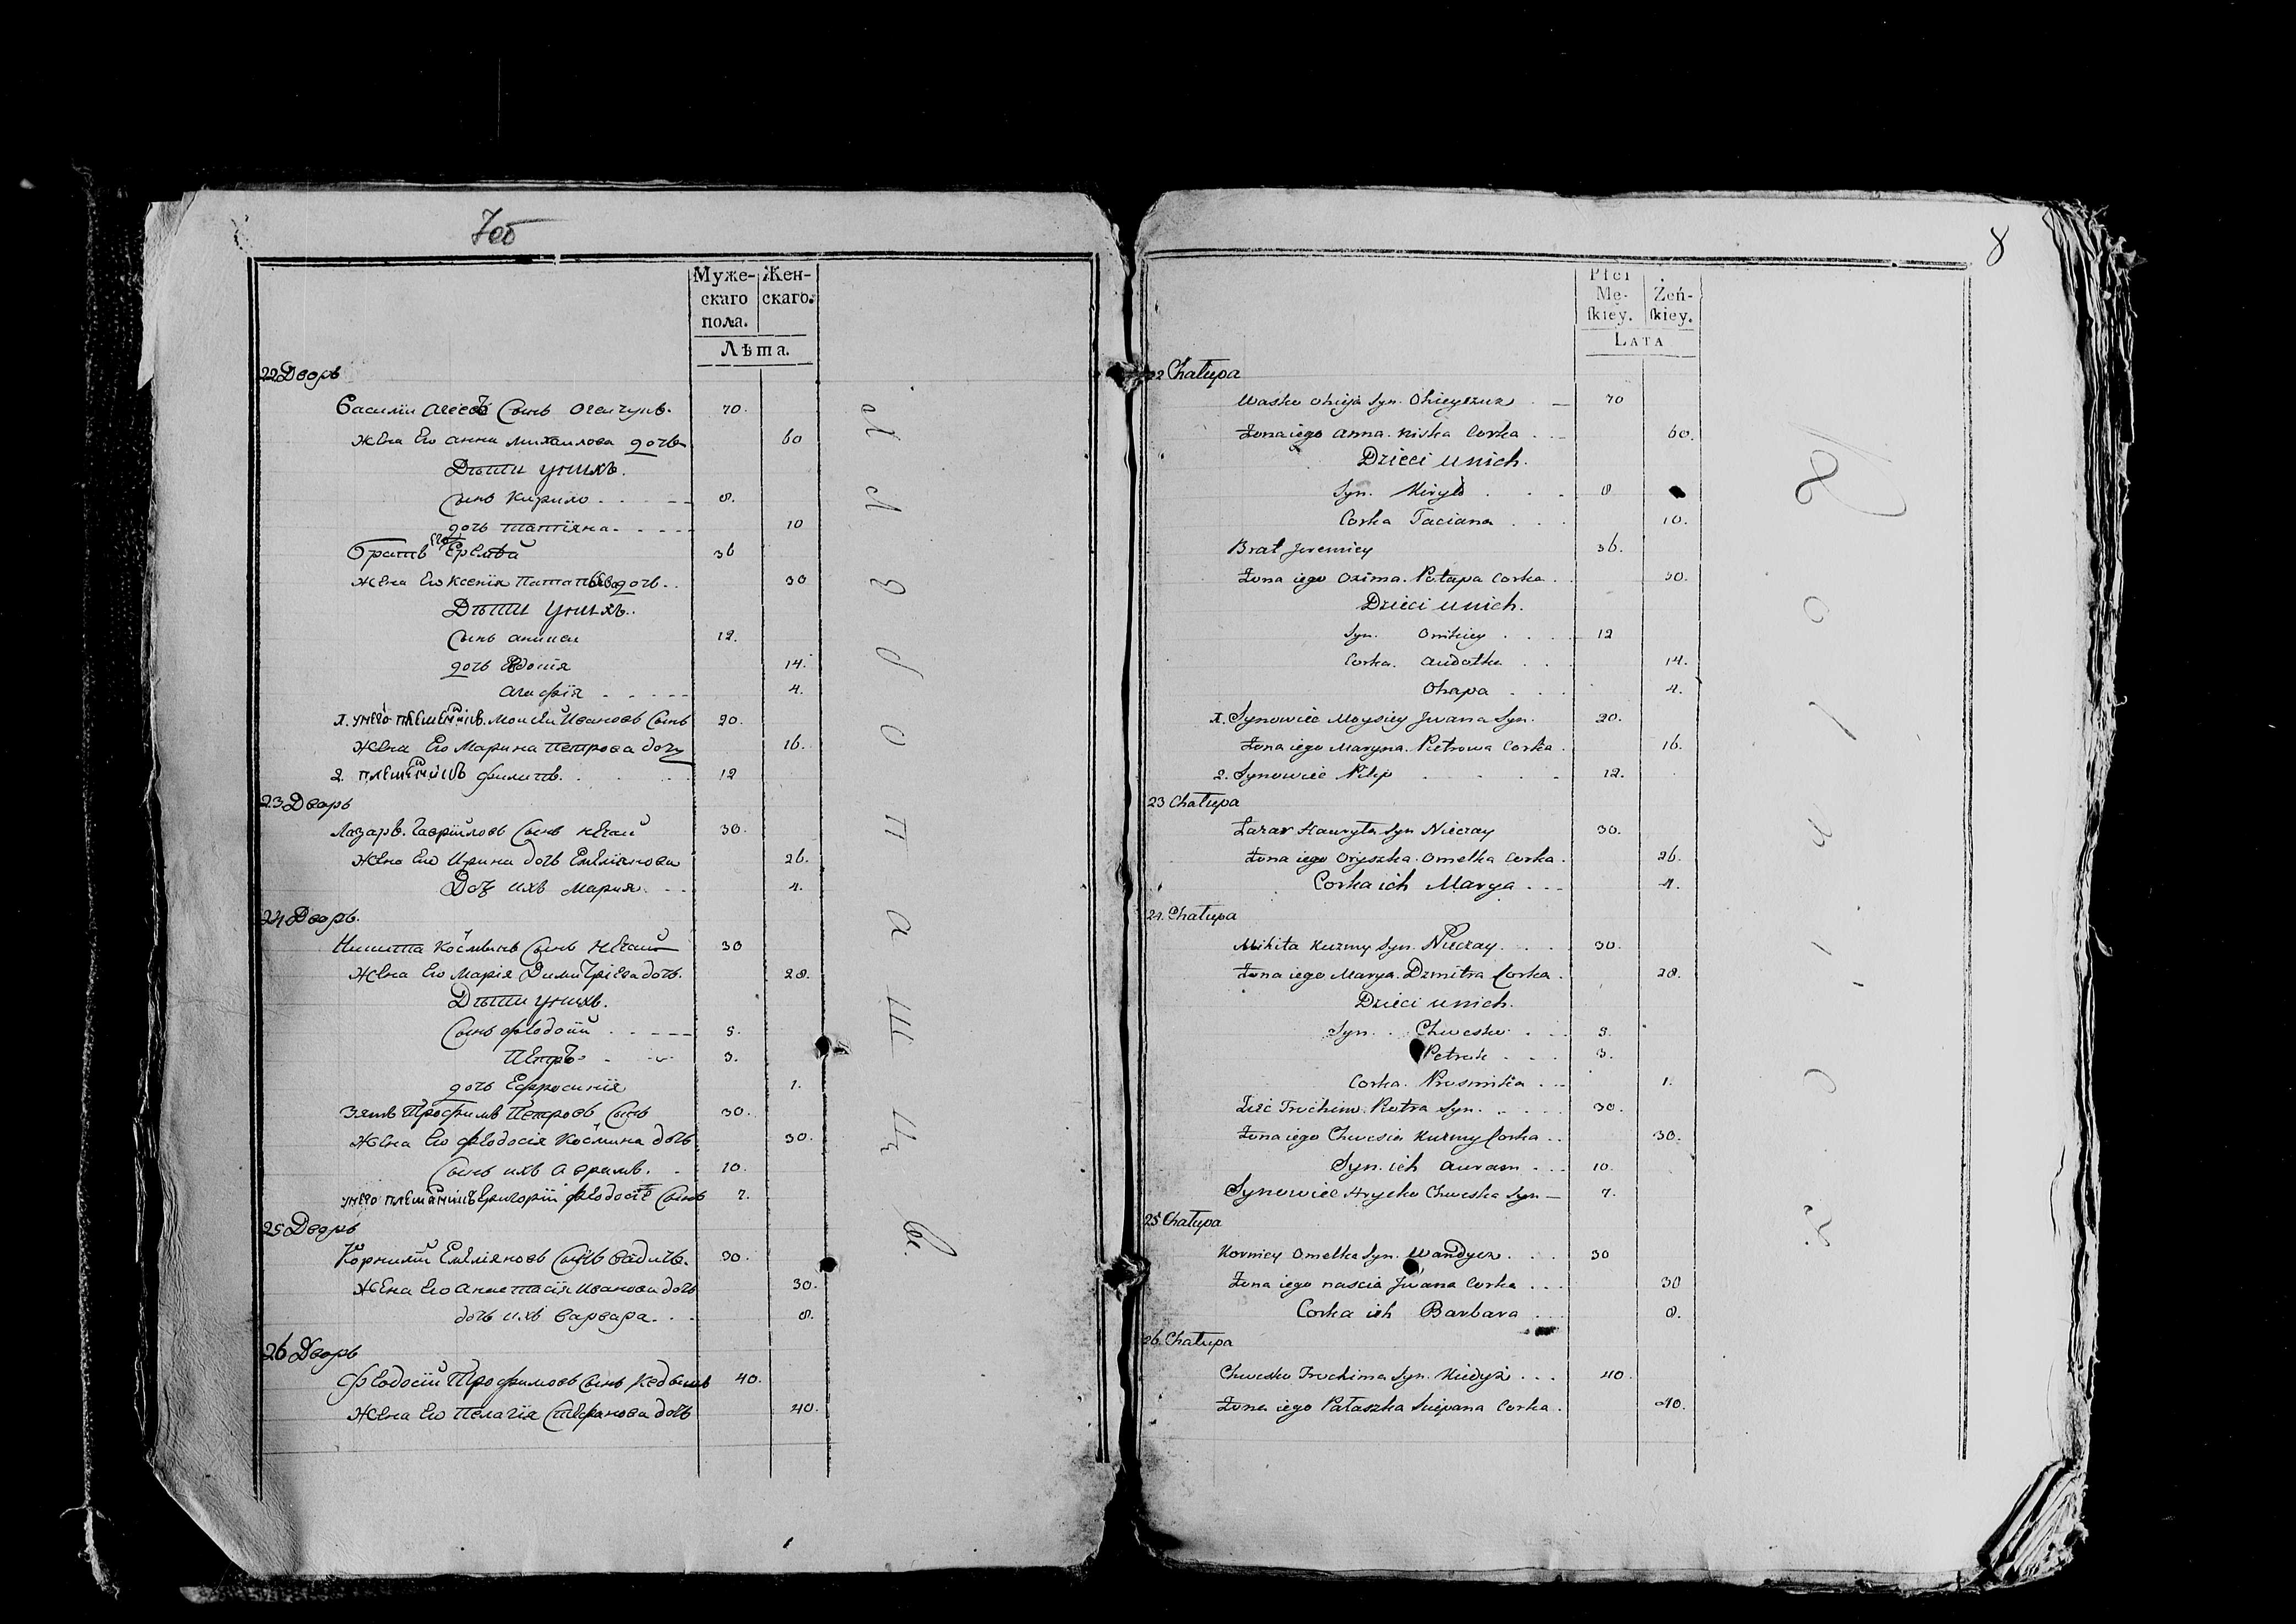 7об
Муже-
скаго
пола.
Жен-
скаго.
Лѣта.
22 Дворъ
Василій Агеевъ Сынъ 70.
жена Его анна михаилова дочь 60
Дѣти унихъ.
Сынъ Кирило 8.
дочь татіяна 10
братъ его Еремѣй 36
жена Его Ксенія дочь 30
Дѣти унихъ.
Сынъ 12.
дочь 14.
агафія 4.
1. унего племянникъ Моисей Ивановъ Сынъ 20.
жена Его Марина петрова дочь 16.
2. племянникъ филипъ 12
23 Дворъ
Лазарь Гавріиловъ Сынъ Нечай 30.
жена Его Ирина дочь Емеліянова 26.
Дочь ихъ Мария 4.
24 Дворъ.
Никита Космынъ Сынъ Нечай 30
жена Его Марія Димитріева дочь 28.
Дѣти унихъ.
Сынъ феодосій 5.
Петръ 3.
дочь Ефросинія 1.
Зять Трофимъ Петровъ Сынъ 30.
жена Его феодосія Космина дочь 30.
Сынъ ихъ Аврамъ 10.
унего племянникъ Григорій феодосіевъ Сынъ 7.
25 Дворъ
Корнилій Емеліяновъ Сынъ 30.
жена Его Анастасія Иванова дочь 30.
дочь ихъ Варвара 8.
26 Дворъ
феодосій Трофимовъ Сынъ 40.
жена Его Пелагія Стефанова дочь 40.
8
Płci
Mę-
ſkiey.
Żeń-
ſkiey.
LATA
22 Chałupa
Wasko Ohieja Syn 70
Żona iego Anna Corka 60.
Dzieci unich.
Syn. Kiryło 8
Corka Taciana 10.
Brat Jeremiey 36.
Żona iego Oxima Potapa Corka 30.
Dzieci unich.
Syn. Onikiey 12
Corka. Audotka 14.
Ohapa 4.
1. Synowiec Moysiey Jwana Syn. 20.
Żona iego Maryna. Pietrowa Corka 16.
2. Synowiec Pilip 12.
23 Chałupa
Łazar Hauryła Syn Nieczay 30.
Żona iego Oryszka. Omelka Corka 26.
Corka ich Marya 4.
24. Chałupa
Mikita Kuzmy Syn. Nieczay 30.
Żona iego Marya. Dzmitra Corka 28.
Dzieci unich.
Syn. Chwesko 5.
Petruk 3.
Corka. Prusinka 1.
Zieć Trochim. Piotra Syn. 30.
Żona iego Chwesia Kuzmy Corka 30.
Syn. ich Auram 10.
Synowiec Hryćko Chweska Syn 7.
25 Chałupa
Korniey Omelka Syn. 30
Żona iego Nascia Jwana Corka 30
Corka ich Barbara 8.
26. Chałupa
Chwesko Trochima Syn. 40
Żona iego Pałaszka Sciepana Corka 40.